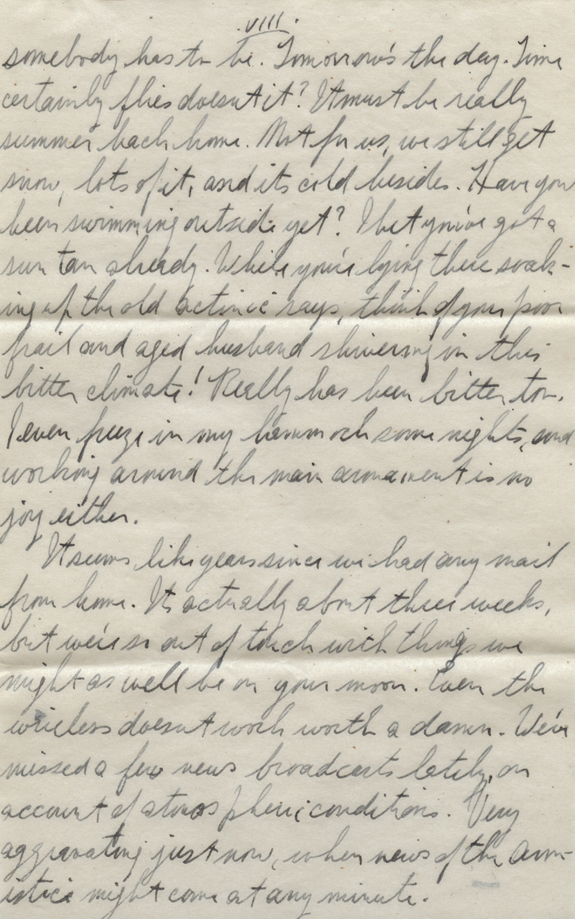 VIII.
somebody has to be. Tomorrow's the day. Time
certainly flies doesn't it? It must be really
summer back home. Not for us, we still get
snow, lots of it, and its cold besides. Have you
been swimming outside yet? I bet you've got a
sun tan already. While you're lying there soak-
ing up the old actinic rays, think of your poor
frail and aged husband shivering in this
bitter climate! Really has been bitter too.
I even freeze in my hammock some nights, and
working around the main armament is no
joy either.
It seems like years since we had any mail
from home. It actually about three weeks,
but we're so out of touch with things we
might as well be on your moon. Even the
wireless doesn't work worth a damn. We've
missed a few news broadcasts lately, on
account of atmospheric conditions. Very
aggravating just now, when news of the arm-
istice might come at any minute.